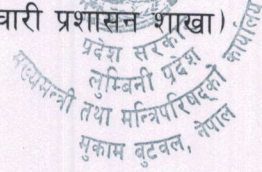 चारी प्रशासन शाखा)
प्रदेश सरकार
लुम्बिनी प्रदेश
मुख्यमन्त्री तथा मन्त्रिपरिषद्को कार्यालय
मुकाम बुटवल, नेपाल